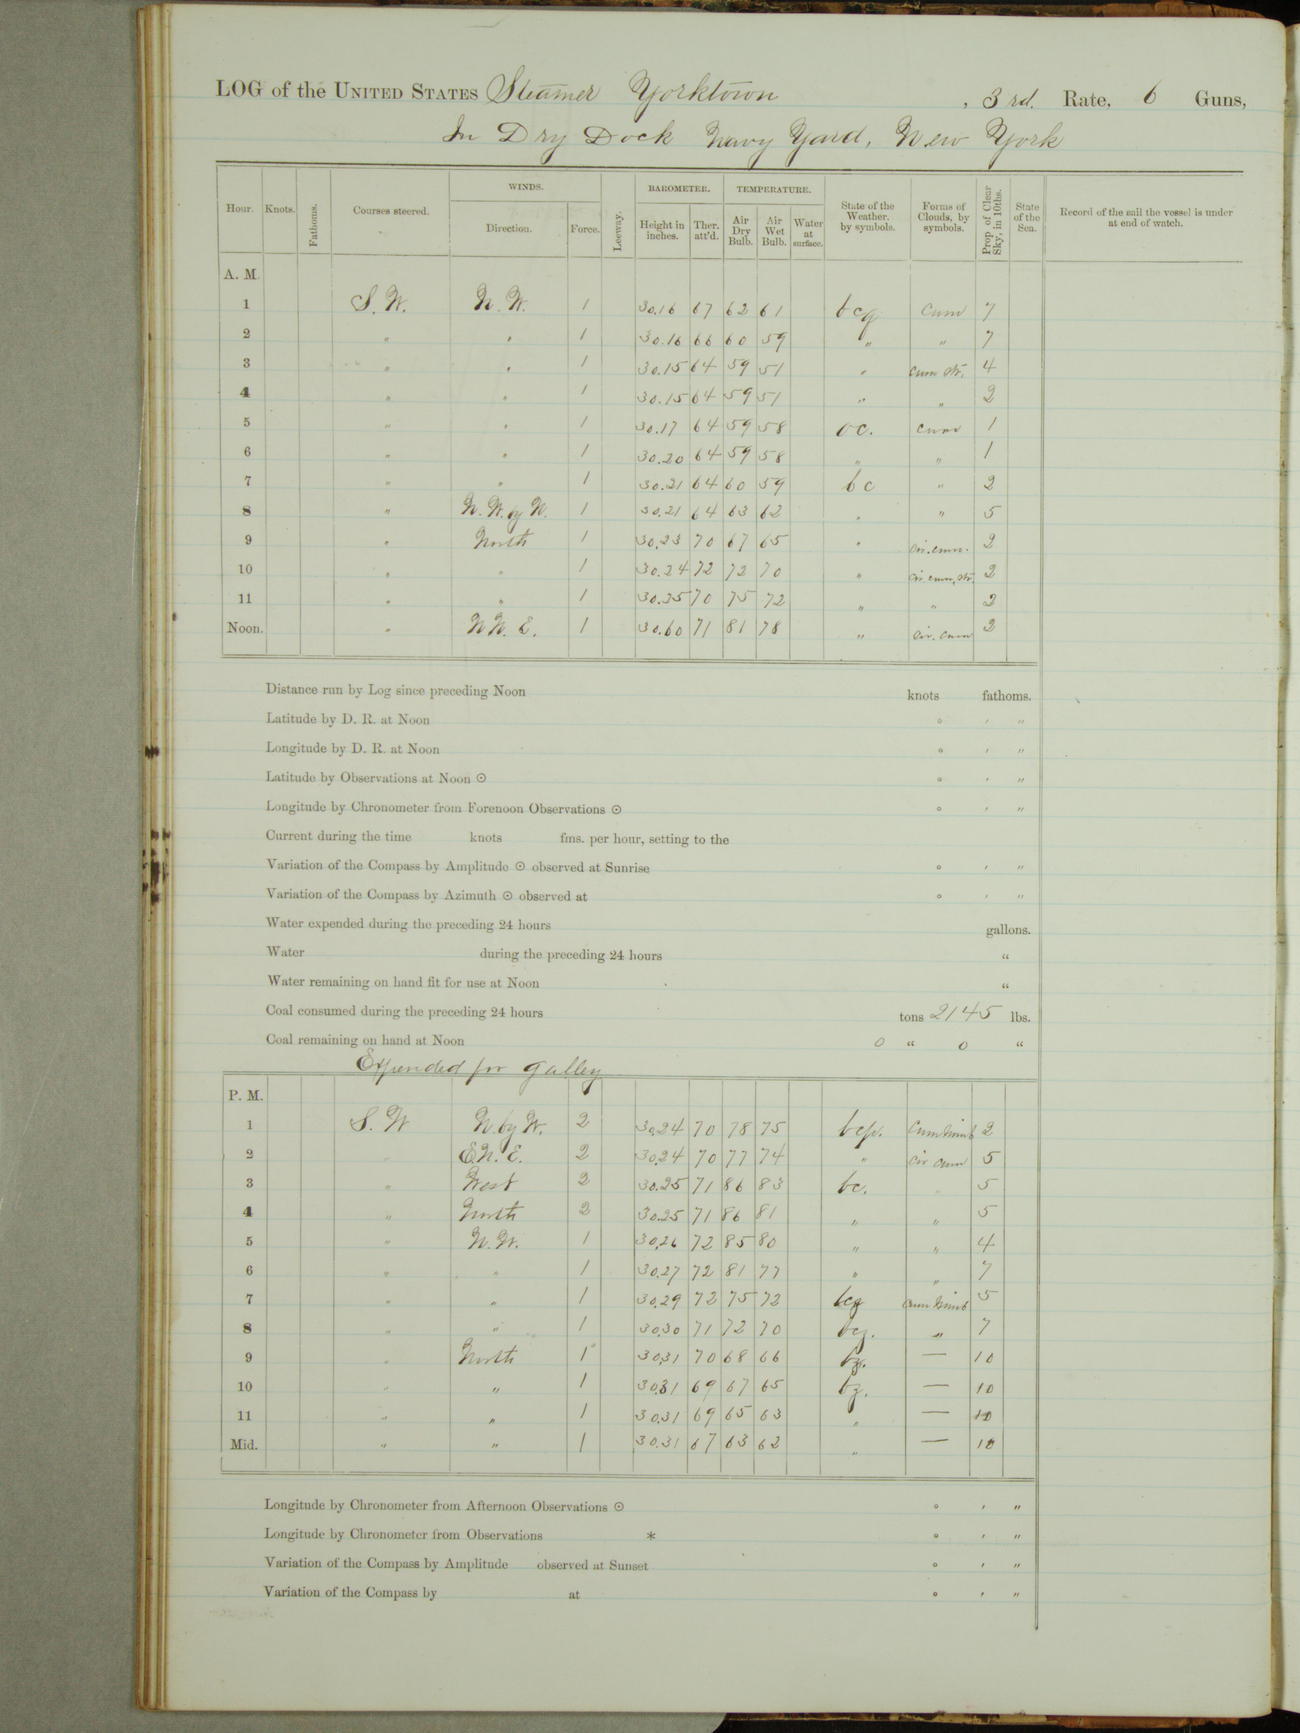 LOG of the UNITED STATES Steamer Yorktown, 3rd. Rate, 6 Guns,
In Dry Dock Navy Yard, New York
Hour. Knots. Fathoms. Courses steered. WINDS. Direction. Force. Leeway. BAROMETER. Height in inches. Ther. att'd. TEMPERATURE. Air Dry Bulb. Air Wet Bulb. Water at surface. State of the Weather. by symbols. Forms of Clouds, by symbols. Prop. of Clear Sky, in 10ths. State of the Sea. Record of the sail the vessel is under at end of watch.
A. M.
1 S. W. N. W. 1 30.16 67 62 61 bcq cum 7
2 " " 1 30.16 66 60 59 " " 7
3 " " 1 30.15 64 59 51 " cum str. 4
4 " " 1 30.15 64 59 51 " " 2
5 " " 1 30.17 64 59 58 oc. cum 1
6 " " 1 30.20 64 59 58 " " 1
7 " " 1 30.21 64 60 59 bc " 2
8 " N. W. by N. 1 30.21 64 63 62 " " 5
9 " North 1 30.23 70 67 65 " cir. cum. 2
10 " " 1 30.24 72 72 70 " cir. cum. str. 2
11 " " 1 30.25 70 75 72 " " 2
Noon. " NN. E. 1 30.60 71 81 78 " cir. cum 2
Distance run by Log since preceding Noon knots fathoms.
Latitude by D. R. at Noon ° ' "
Longitude by D. R. at Noon ° ' "
Latitude by Observations at Noon ⊙ ° ' "
Longitude by Chronometer from Forenoon Observations ⊙ ° ' "
Current during the time knots fms. per hour, setting to the
Variation of the Compass by Amplitude ⊙ observed at Sunrise ° ' "
Variation of the Compass by Azimuth ⊙ observed at ° ' "
Water expended during the preceding 24 hours gallons.
Water during the preceding 24 hours "
Water remaining on hand fit for use at Noon "
Coal consumed during the preceding 24 hours tons 2145 lbs.
Coal remaining on hand at Noon 0 " 0 "
Expended for galley
P. M.
1 S. W N. by W. 2 30.24 70 78 75 bcp. Cum Nimb 2
2 " E N. E. 2 30.24 70 77 74 " cir cum 5
3 " West 2 30.25 71 86 83 bc. " 5
4 " North 2 30.25 71 86 81 " " 5
5 " N. W. 1 30.26 72 85 80 " " 4
6 " " 1 30.27 72 81 77 " " 7
7 " " 1 30.29 72 75 72 bcq cum Nimb 5
8 " " 1 30.30 71 72 70 bcz. " 7
9 " North 1 30.31 70 68 66 bz. — 10
10 " " 1 30.31 69 67 65 bz. — 10
11 " " 1 30.31 69 65 63 " — 10
Mid. " " 1 30.31 67 63 62 " — 10
Longitude by Chronometer from Afternoon Observations ⊙ ° ' "
Longitude by Chronometer from Observations * ° ' "
Variation of the Compass by Amplitude observed at Sunset ° ' "
Variation of the Compass by at ° ' "